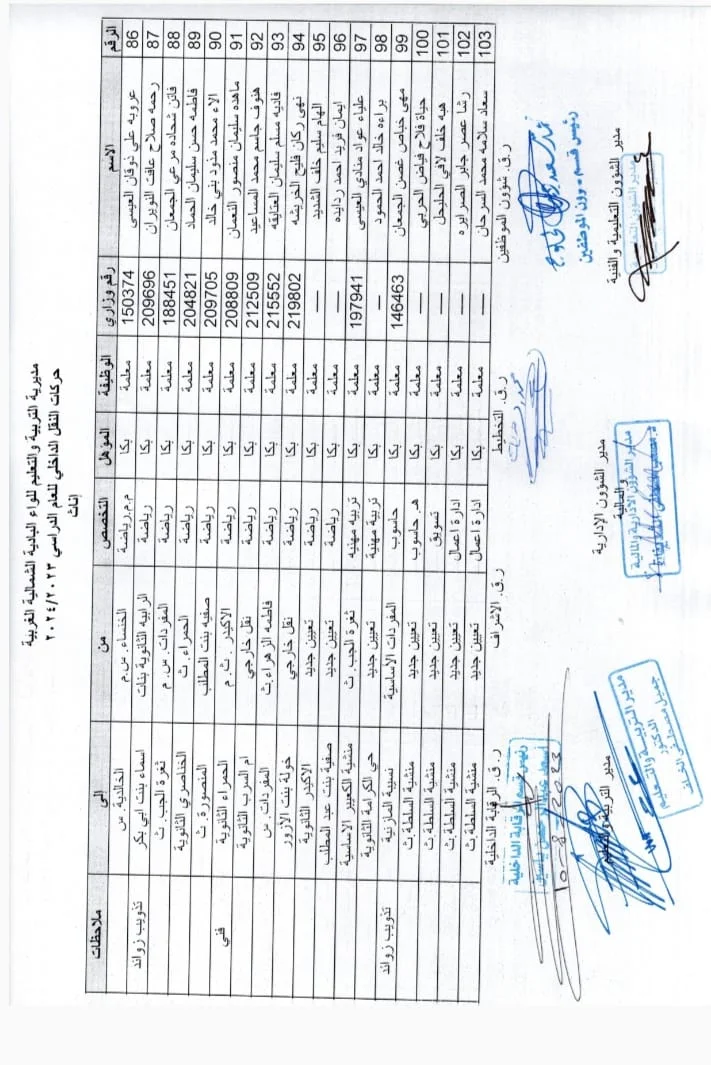 مديرية التربية والتعليم للواء البادية الشمالية الغربية
حركات النقل الداخلي للعام الدراسي ٢٠٢٤/٢٠٢٣
إناث
الرقم الاسم رقم وزاري الوظيفة المؤهل التخصص من الى ملاحظات
86 عروبه علي نوفان العيسى 150374 معلمة بكا م.م.رياضة الخنساء .س.م الخالدية .س
87 رحمه صلاح عافت النويران 209696 معلمة بكا رياضة الرابيه الثانوية بنات اسماء بنت ابي بكر تذويب زوائد
88 فاتن شحاده مرعي الجمعان 188451 معلمة بكا رياضة المفردات .س.م ثغرة الجب .ث
89 فاطمه حسن سليمان الحماد 204821 معلمة بكا رياضة الحمراء .ث الخناصري الثانوية
90 الاء محمد منود بني خالد 209705 معلمة بكا رياضة صفيه بنت المطلب المنصورة .ث
91 ماهده سليمان منصور النعمان 208809 معلمة بكا رياضة الاكيدر .ث.م الحمراء الثانوية فني
92 هنوف جاسم محمد المساعيد 212509 معلمة بكا رياضة نقل خارجي ام السرب الثانوية
93 فاديه مسلم سليمان العتايقه 215552 معلمة بكا رياضة فاطمه الزهراء.ث المفردات .س
94 نهى ركان فليح الخريشه 219802 معلمة بكا رياضة نقل خارجي خولة بنت الأزور
95 الهام سليم خلف الشديد — معلمة بكا رياضة تعيين جديد الاكيدر الثانوية
96 ايمان فريد احمد ردايده — معلمة بكا رياضة تعيين جديد صفية بنت عبد المطلب
97 علياء عواد منادي العيسى 197941 معلمة بكا تربيه مهنيه ثغرة الجب .ث منشية الكعيبر الاساسية
98 براءه خالد احمد الحمود — معلمة بكا تربية مهنية تعيين جديد حي الكرامة الثانوية
99 مهى خباص غصن الجمعان 146463 معلمة بكا حاسوب المفردات الاساسية نسيبة المازنية تذويب زوائد
100 حياة فلاح فياض الحربي — معلمة بكا هـ حاسوب تعيين جديد منشية السلطة .ث
101 هبه خلف لافي الحليحل — معلمة بكا تسويق تعيين جديد منشية السلطة .ث
102 رشا عصر جابر الصرايره — معلمة بكا ادارة اعمال تعيين جديد منشية السلطة .ث
103 سعاد سلامه محمد السرحان — معلمة بكا ادارة اعمال تعيين جديد منشية السلطة .ث
ر.ق. شؤون الموظفين ر.ق. التخطيط ر.ق. الاشراف ر.ق. الرقابة الداخلية
رئيس قسم شؤون الموظفين
رئيس قسم الرقابة الداخلية
10-8/2023
مدير الشؤون التعليمية والفنية
مدير الشؤون الإدارية والمالية
مدير التربية والتعليم
مدير الشؤون الادارية والمالية
مدير التربية والتعليم
الدكتور
جميل مصطفى الخلف